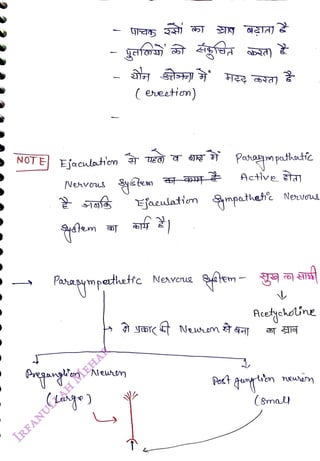 - पाचक रसों का स्राव बढ़ाता है
- पुतलियों को संकुचित करता है
- यौन उत्तेजना में मदद करता है
( erection)
-
NOTE Ejaculation से पहले व बाद में Parasympathatic
Nervous System का काम है Active होता
है जबकि Ejaculation Sympathatic Nervous
System का कार्य है|
→ Parasympathetic Nervous System - सुख का साथी
Acetycholine
→ दो प्रकार की Neuron से बना का स्राव
Preganglion Neuron Post ganglion neuron
(Large) (Small
IRFANULLAH MEHAR